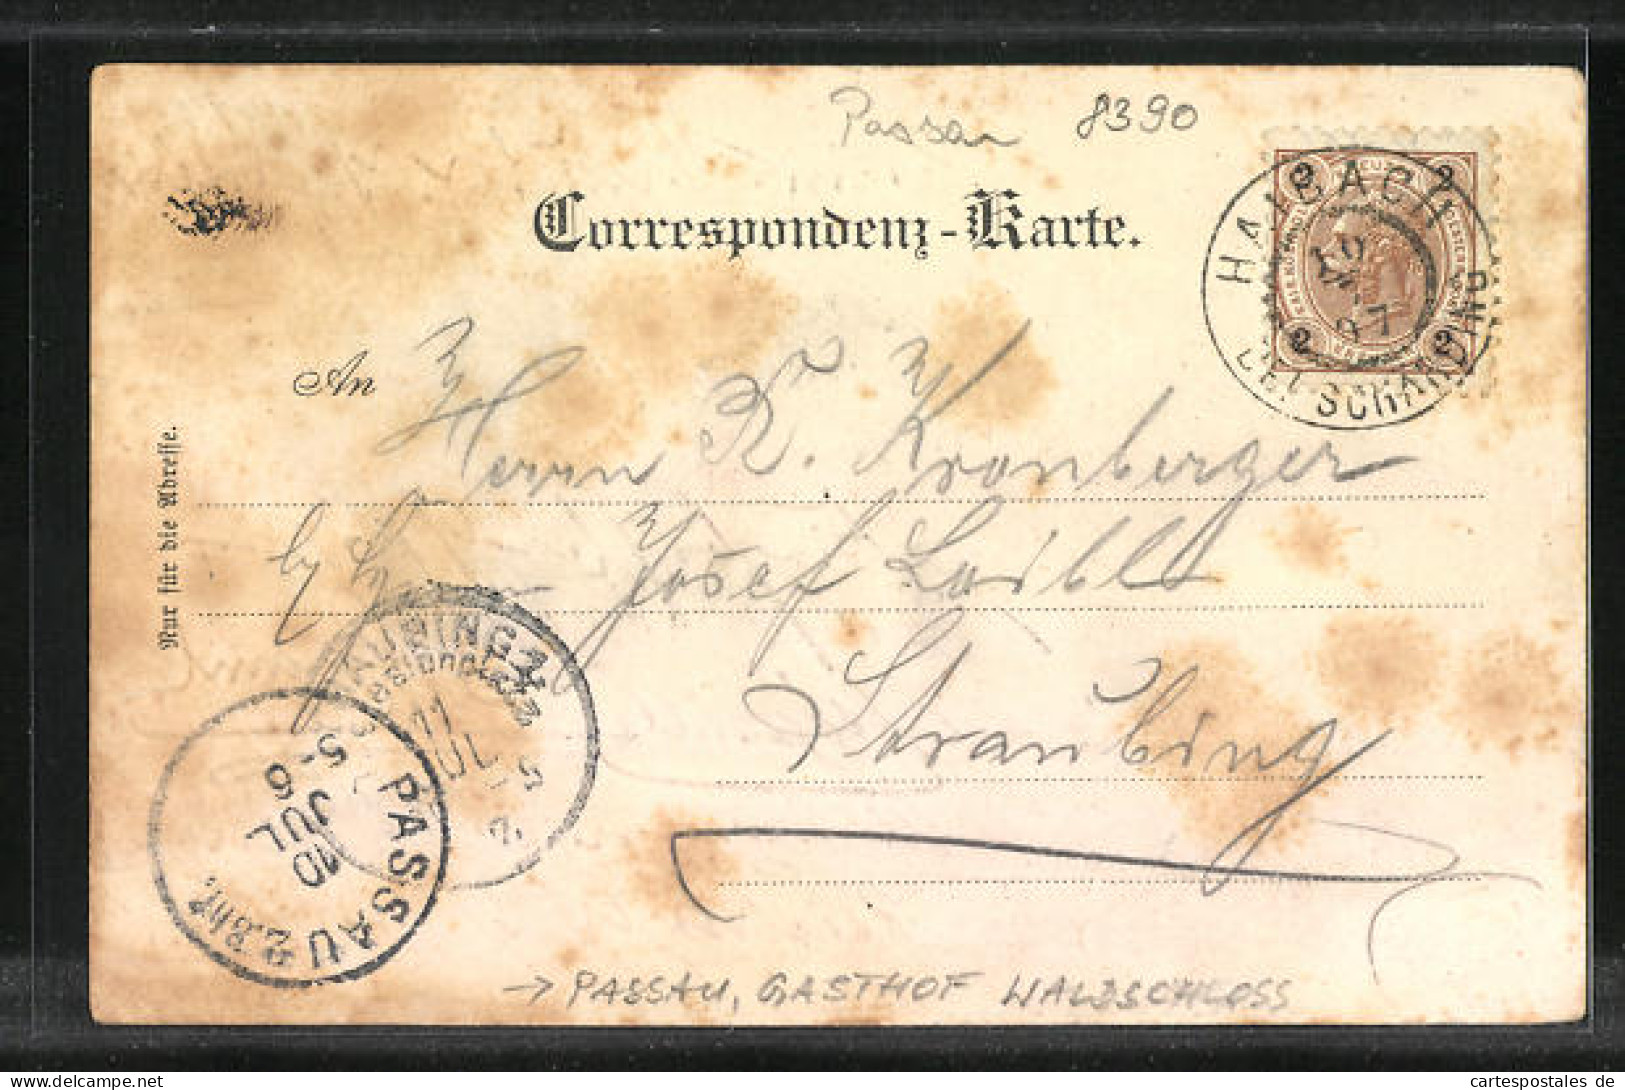 Passau 8390
Correspondenz-Karte.
HAIBACH
BEI SCHÄRDING
10
97
2 2
2 2
An
Herrn K. Kronberger
Josef Loibl
Straubing
Nur für die Adresse.
11
JUL
PASSAU 2. Bhf.
10
JUL
5-6
→ PASSAU, GASTHOF WALDSCHLOSS
cartespostales de